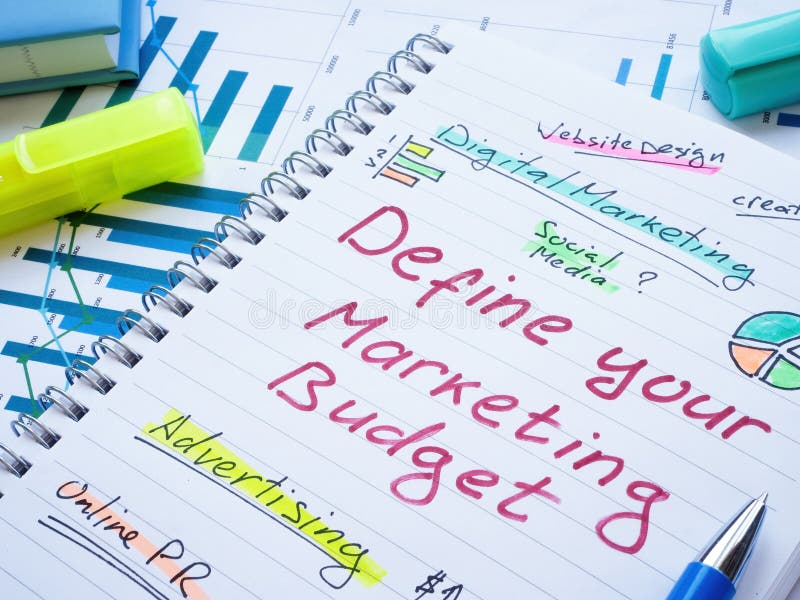 Website Design
Digital Marketing
creat
Social
Media ?
Define your
Marketing
Budget
Advertising
Online PR
$↑
dreamstime